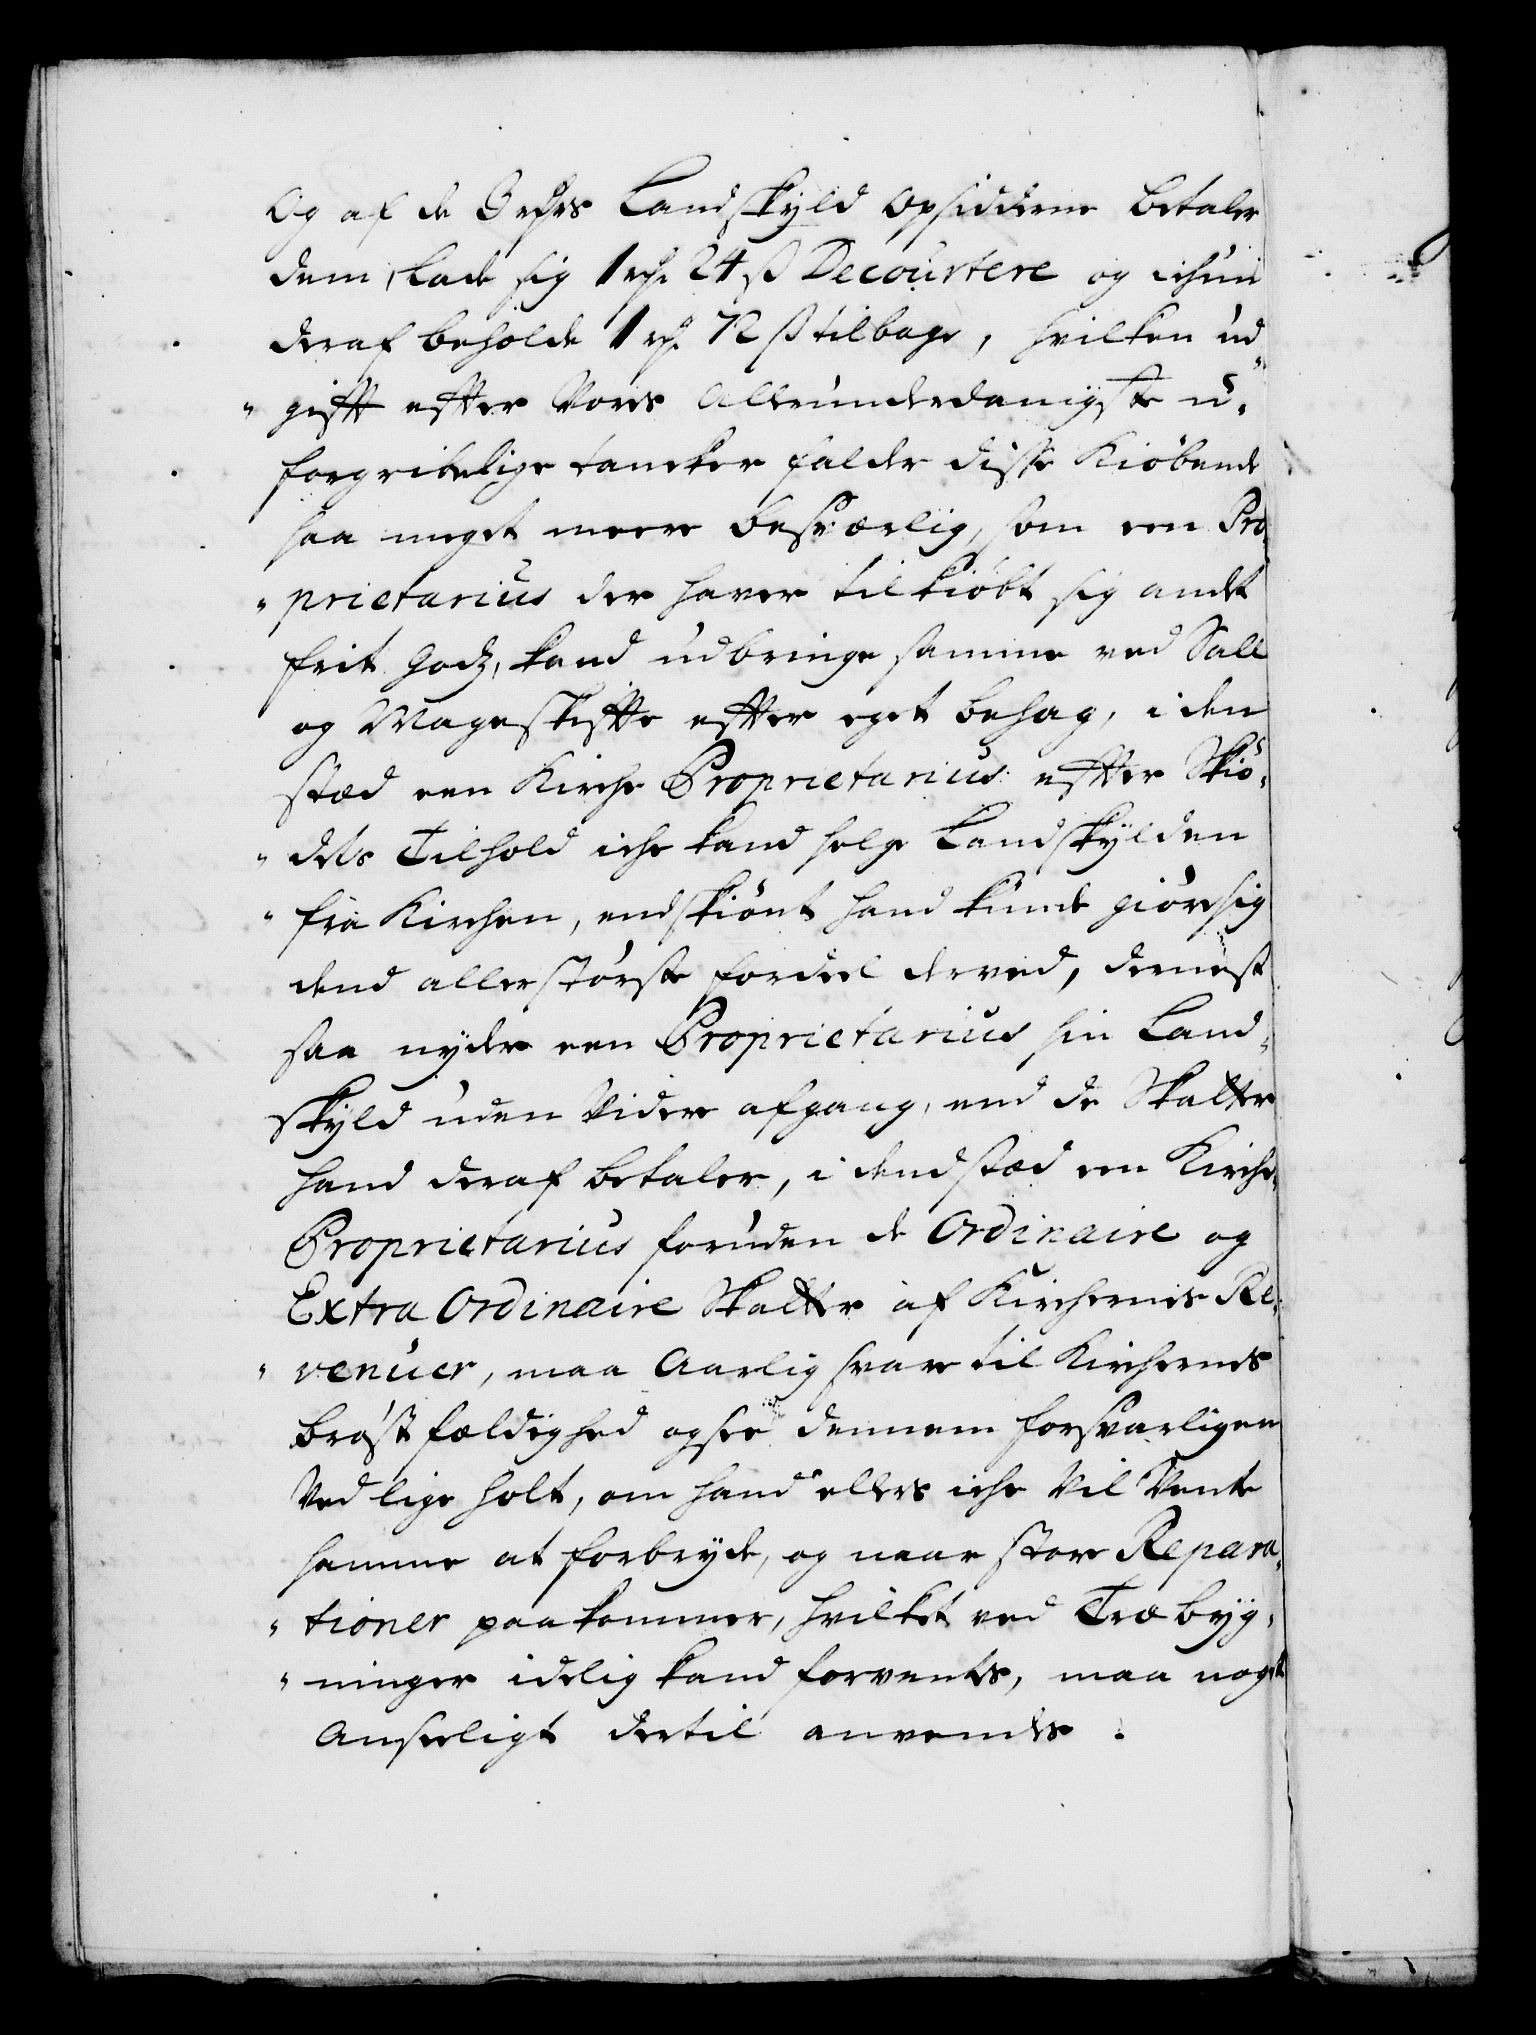 Og af de 3 rdrs Landskyld Opsidderne betaler
dem, lade sig 1 rdr. 24 ß Decourtere og ichun
deraf beholde 1 rdr. 72 ß tilbage, hvilken ud„
„gifft effter Vores Allerunderdanigste u„
forgribelige tancker falder disse Kiöbende
saa meget meere besværlig, som een Pro„
„prietarius der haver tilkiöbt sig andet
frit Godz, kand udbringe samme ved Sall
og Mageskiffte effter eget behag, i den
stæd een Kirche Proprietarius effter Skiö„
„dets Tilhold iche kand selge Landskylden
„fra Kirchen, endskiönt hand kunde giöre sig
dend allerstörste fordeel derved, dernest
saa nyder een Proprietarius sin Land„
skyld uden Videre afgang, end de Skatter
hand deraf betaler, i dend stæd een Kirche„
Proprietarius foruden de Ordinaire og
Extra Ordinaire Skatter af Kirchernes Re„
„venuer, maa Aarlig svare til Kirchernes
bröstfældighed og see dennem forsvarligen
Ved lige holt, om hand ellers iche Vil Vente
samme at forbryde, og naar store Repara„
„tioner paakommer, hvilket ved Træbyg„
„ninger idelig kand forventes, maa noget
Anseeligt dertil anvendes.